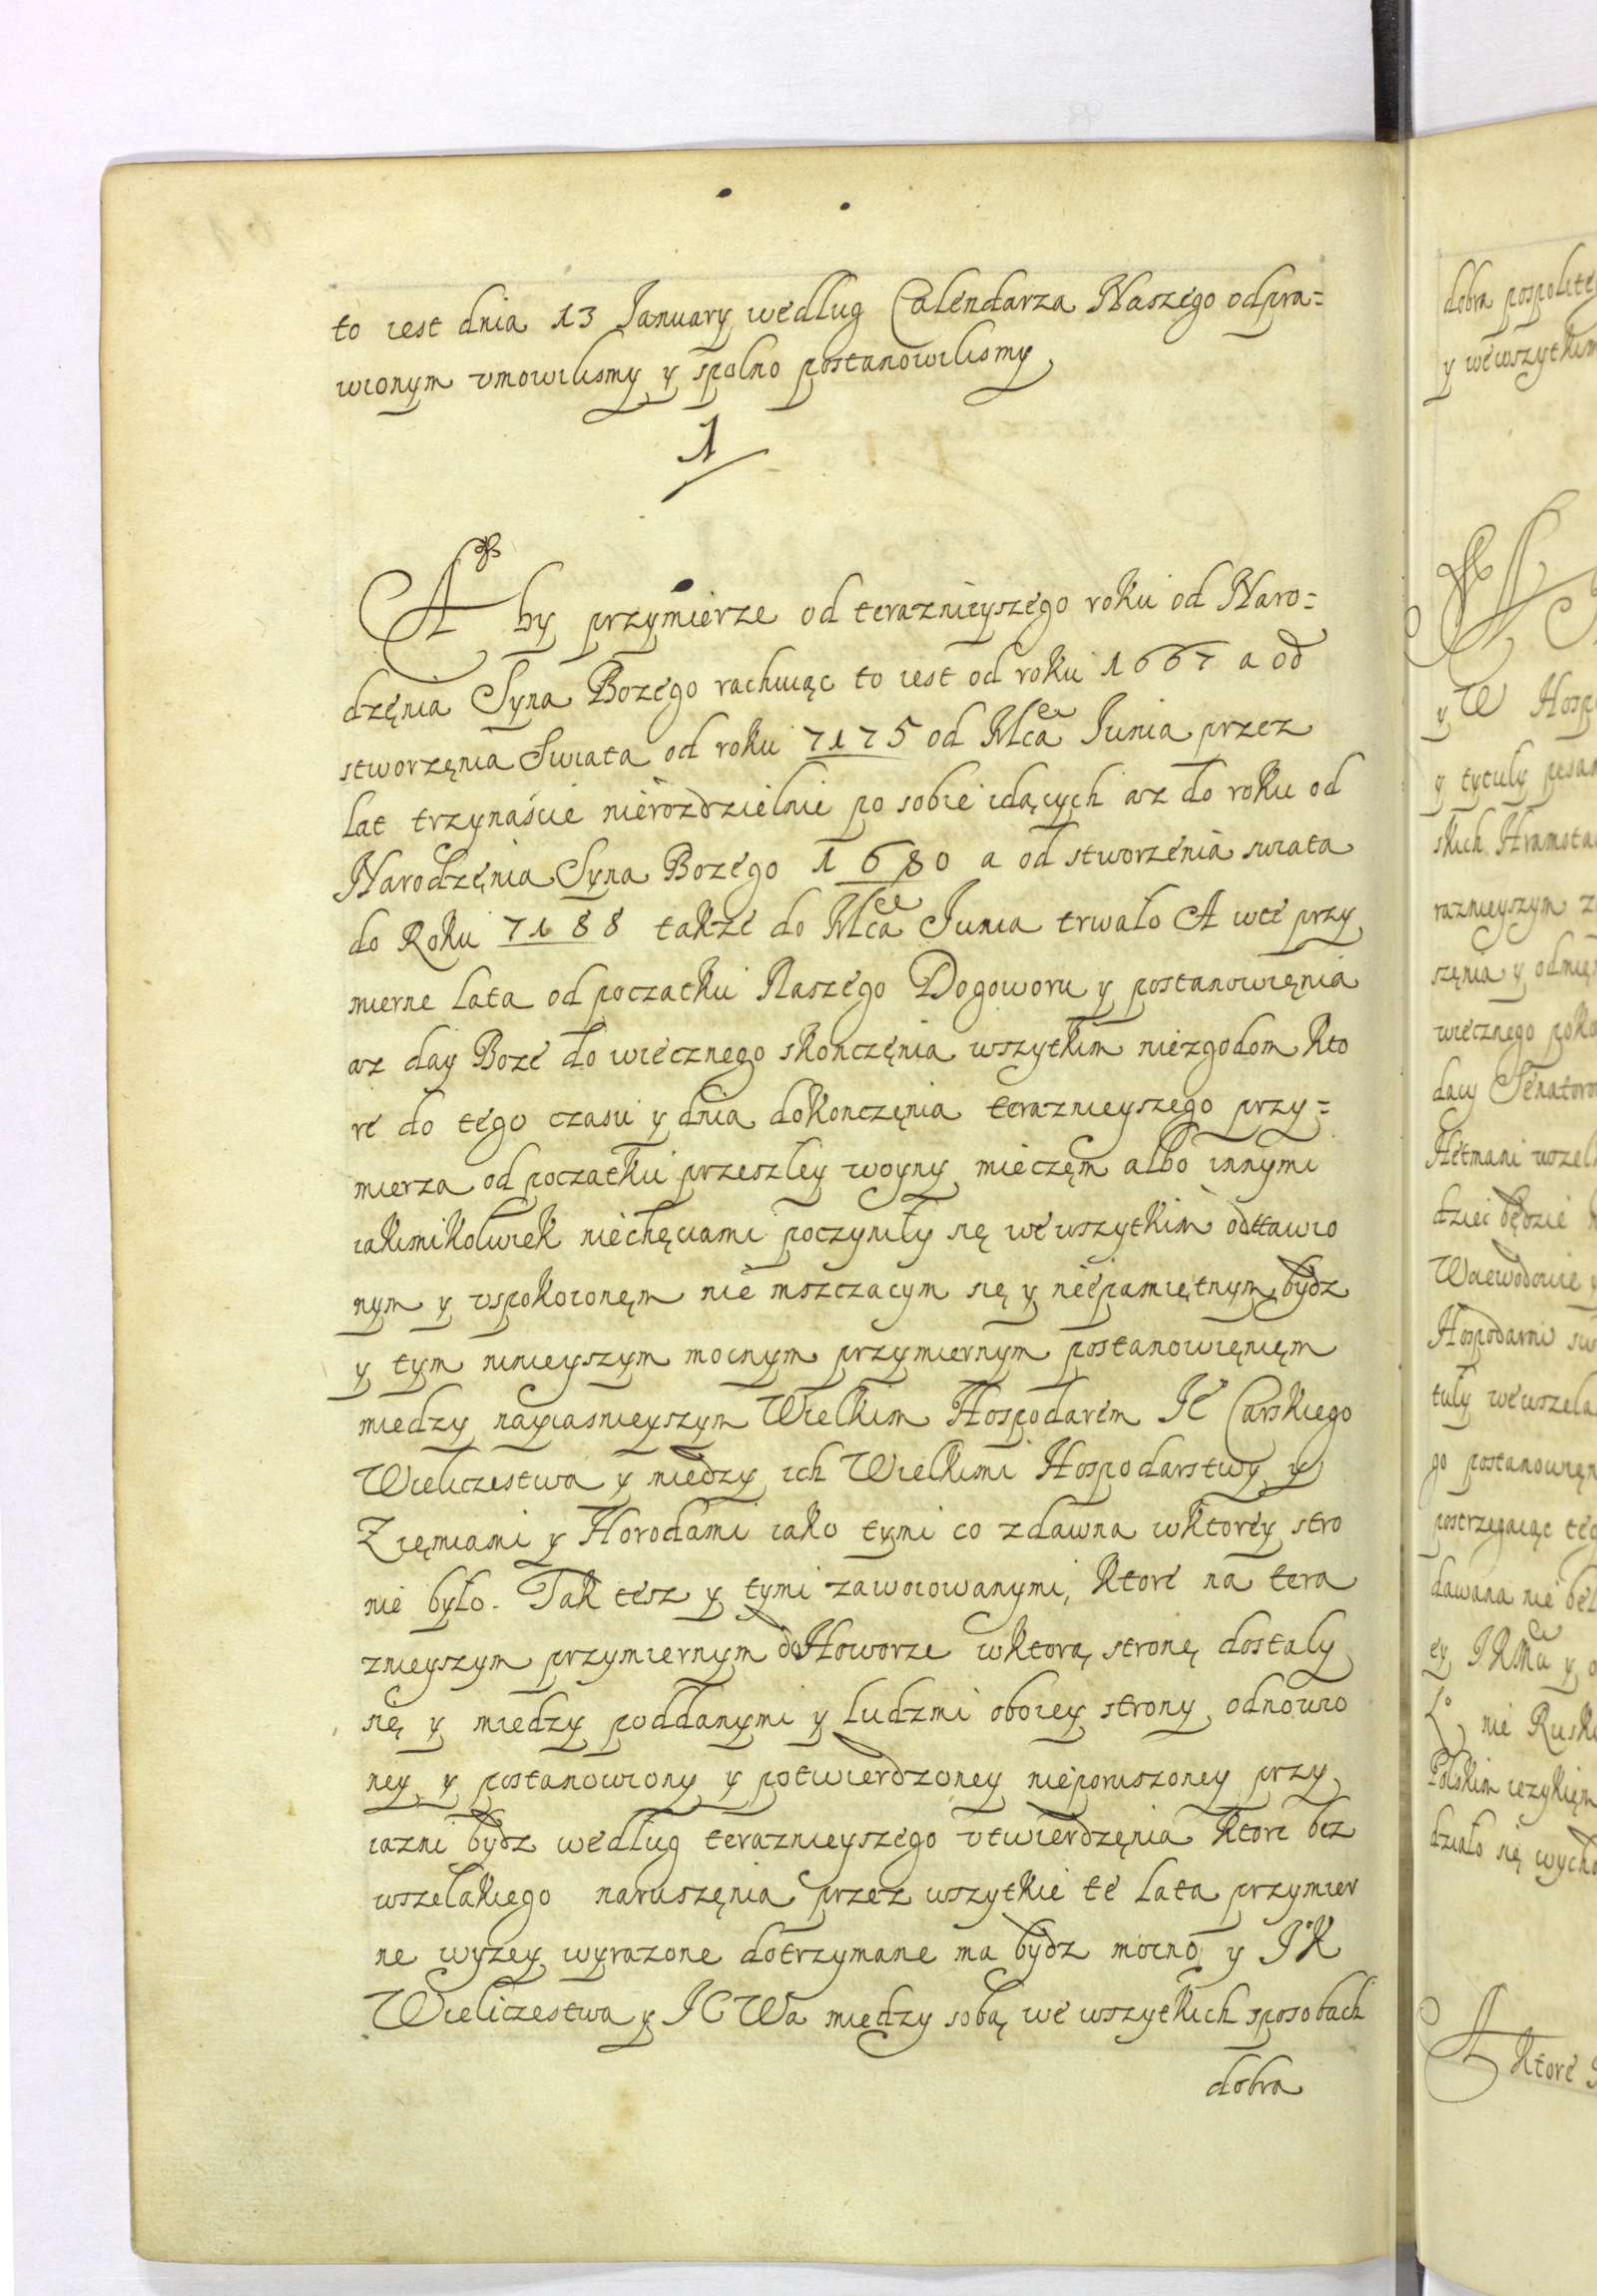 to iest dnia 13 January według Calendarza Naszego odpra=
wionym vmowilismy y spolno postanowilismy
1
Aby przymierze od teraznieyszego roku od Naro=
dzęnia Syna Bozego rachuiąc to iest od roku 1667 a od
stworzęnia Swiata od roku 7175 od Mca Junia przez
lat trzynaście nierozdzielnie po sobie idących asz do roku od
Narodzęnia Syna Bozego 1680 a od stworzenia swiata
do Roku 7188 takze do Mca Junia trwało A wte przy
mierne lata od początku Naszego Dogoworu y postanowięnia
asz day Boze do wiecznego skonczęnia wszytkim niezgodom kto
re do tego czasu y dnia dokonczęnia teraznieyszego przy=
mierza od początku przeszley woyny mieczęm albo innymi
iakimikolwiek niechęciami poczyniły się we wszytkim odstawio
nym y vspokoionęm nie mszczacym się y niepamiętnym bydz
y tym ninieyszym mocnym przymiernym postanowięnięm
miedzy nayiasnieyszym Wielkim Hospodarem JC Carskiego
Wieliczestwa y miedzy ich Wielkimi Hospodarstwy y
Zięmiami y Horodami iako tymi co zdawna wktorey stro
nie było. Tak tesz y tymi zawoiowanymi, ktore na tera
znieyszym przymiernym doHoworze wktorą stronę dostaly
się y miedzy poddanymi y ludzmi oboiey strony odnowio
ney y postanowiony y potwierdzoney nieporuszoney przy
iazni bydz według teraznieyszego vtwierdzęnia ktore bez
wszelakiego naruszęnia przez wszytkie te lata przymier
ne wyzey wyrazone dotrzymane ma bydz mocno y JK
Wieliczestwa y JC Wa miedzy sobą we wszytkich sposobach
dobra